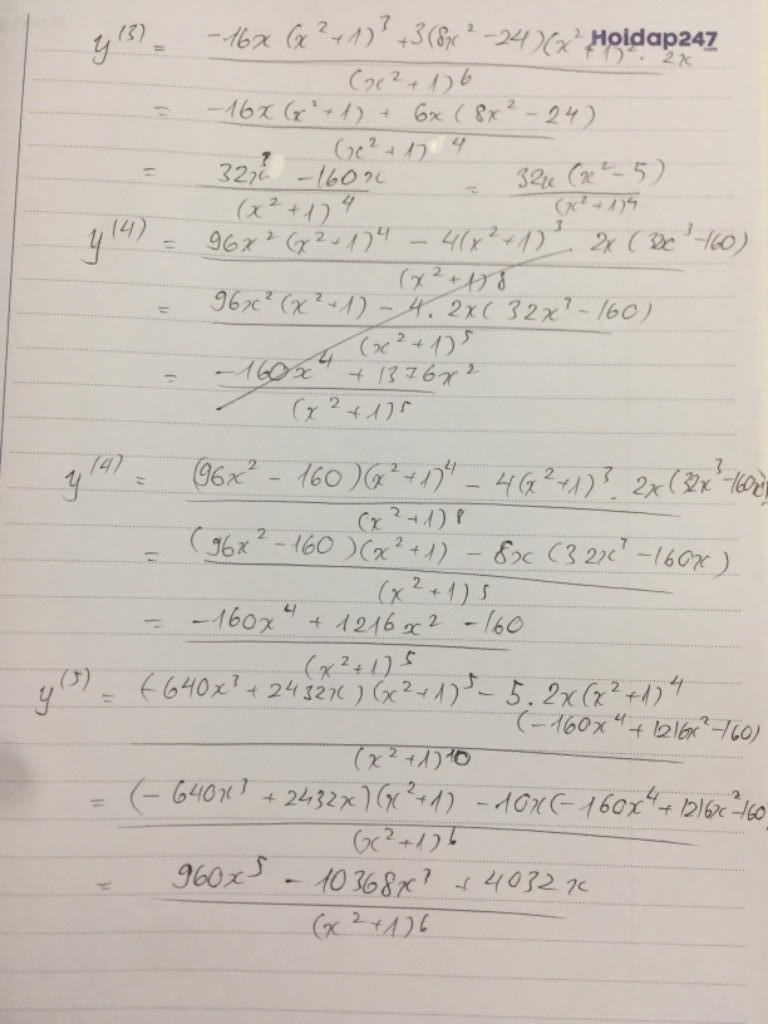 y^(3) = (-16x (x^2+1)^3 + 3(8x^2 -24)(x^2+1)^2 . 2x) / (x^2+1)^6
Hoidap247
= (-16x (x^2+1) + 6x (8x^2 - 24)) / (x^2+1)^4
= (32x^3 - 160x) / (x^2+1)^4 = 32x (x^2-5) / (x^2+1)^4
y^(4) = (96x^2 (x^2+1)^4 - 4(x^2+1)^3 . 2x (32x^3-160)) / (x^2+1)^8
= (96x^2 (x^2+1) - 4. 2x( 32x^3 -160)) / (x^2+1)^5
= (-160x^4 + 1376x^2) / (x^2+1)^5
y^(4) = ((96x^2 - 160)(x^2+1)^4 - 4(x^2+1)^3 . 2x (32x^3-160x)) / (x^2+1)^8
= ((96x^2 -160)(x^2+1) - 8x (32x^3 -160x)) / (x^2+1)^5
= (-160x^4 + 1216x^2 -160) / (x^2+1)^5
y^(5) = (-640x^3 + 2432x)(x^2+1)^5 - 5. 2x(x^2+1)^4
(-160x^4 + 1216x^2-160) / (x^2+1)^10
= ((- 640x^3 + 2432x)(x^2+1) - 10x(-160x^4+1216x^2-160) / (x^2+1)^6
= (960x^5 - 10368x^3 + 4032x) / (x^2+1)^6